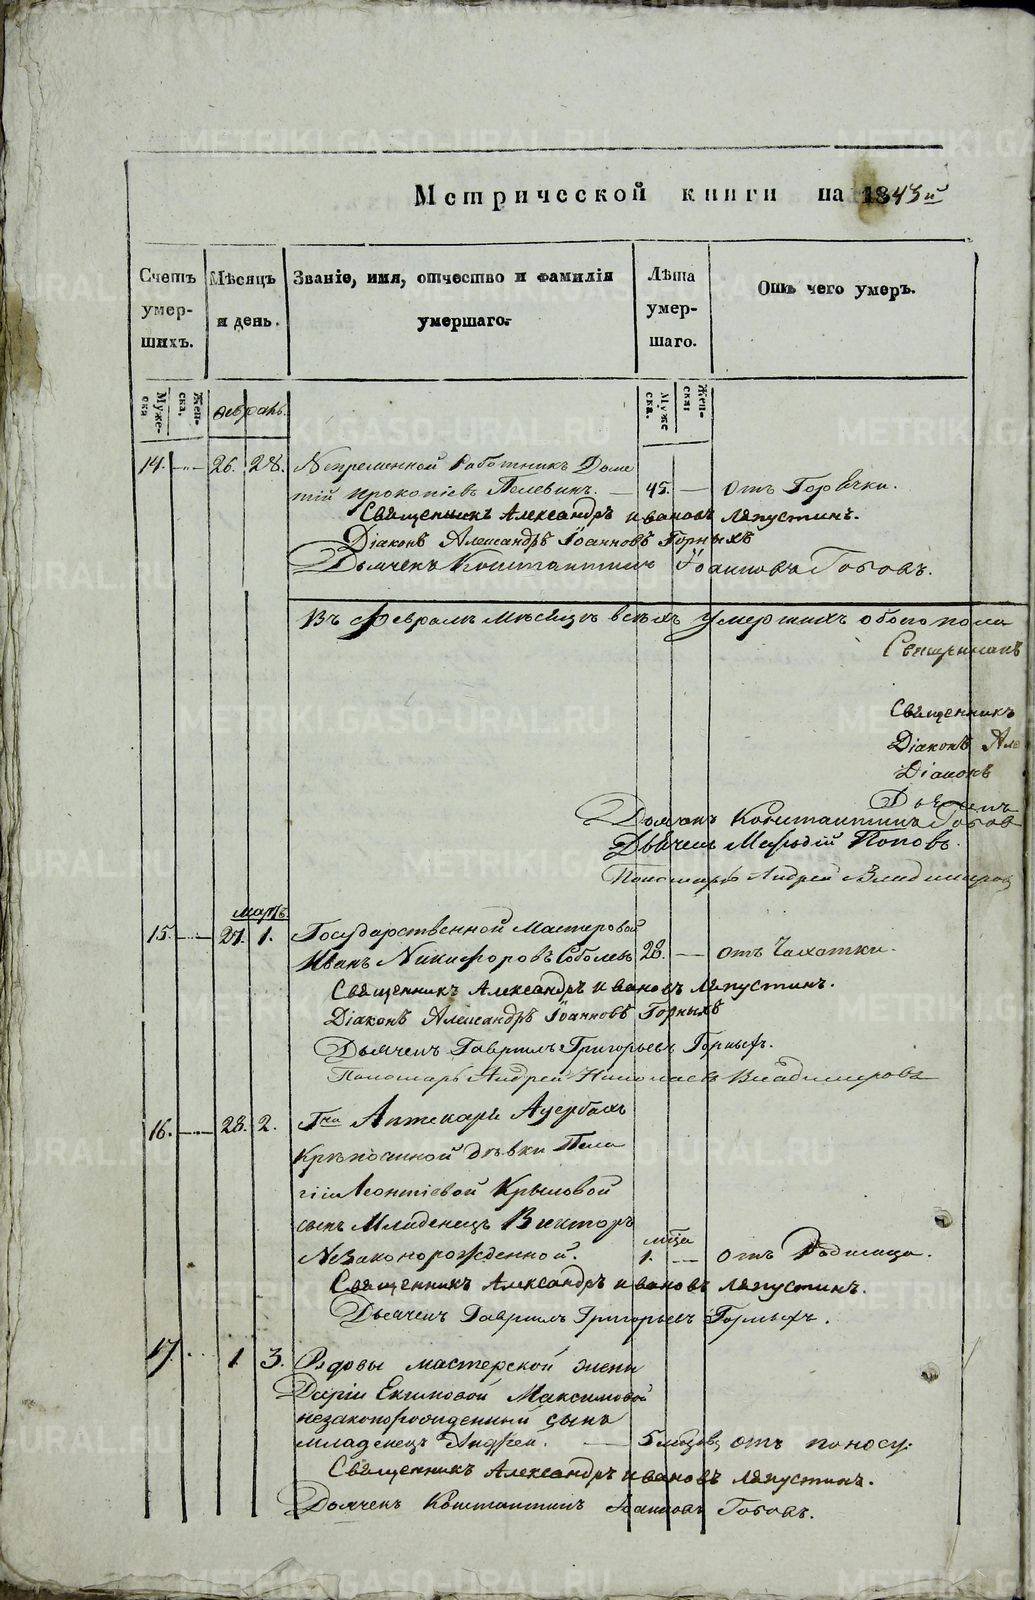 Метрической книги на 1843й
Счетъ умер- шихъ.
Мѣсяцъ и день.
Званіе, имя, отчество и фамилія умершаго.
Лѣта умер- шаго.
Отъ чего умеръ.
Муже- ска
Жен- ска.
Февраль.
Муже ска.
Жен- ска:
14. 26. 28. Непременной Работникъ Доме
тій Прокопіевъ Пелевинъ. 45. Отъ Горячки.
Священникъ Александръ Ивановъ Ляпустинъ.
Діаконъ Александръ Іоанновъ Горныхъ
Дьячекъ Константинъ Іоанновъ Гобовъ.
Въ Февралѣ мѣсяцѣ всѣхъ умершихъ обоего пола
Священникъ
Священникъ
Діаконъ Але
Діаконъ
Дьячекъ
Дьячекъ Константинъ Гобов
Дьячекъ Мефодій Поповъ.
Пономарь Андрей Владимиров
Мартъ.
15. 27. 1. Государственной Мастеровой
Иванъ Никифоровъ Соболевъ 28. отъ Чахотки.
Священникъ Александръ Ивановъ Ляпустинъ.
Діаконъ Александръ Іоанновъ Горныхъ
Дьячекъ Гавріилъ Григорьевъ Горныхъ.
Пономарь Андрей Николаевъ Владимировъ
16. 28. 2. Гна Аптекаря Ауербахъ
Крѣпостной дѣвки Пела
гіи Леонтіевой Крыловой
сынъ Младенецъ Викторъ
мца
Незаконорожденной. 1. отъ Родимца.
Священникъ Александръ Ивановъ Ляпустинъ.
Дьячекъ Гавріилъ Григорьевъ Горныхъ.
17. 1. 3. Рядовы мастерской жены
Даріи Екимовой Максимовой
незаконорожденный сынъ
младенецъ Андрей. 5 мцовъ отъ поносу.
Священникъ Александръ Ивановъ Ляпустинъ.
Дьячекъ Константинъ Іоанновъ Гобовъ.